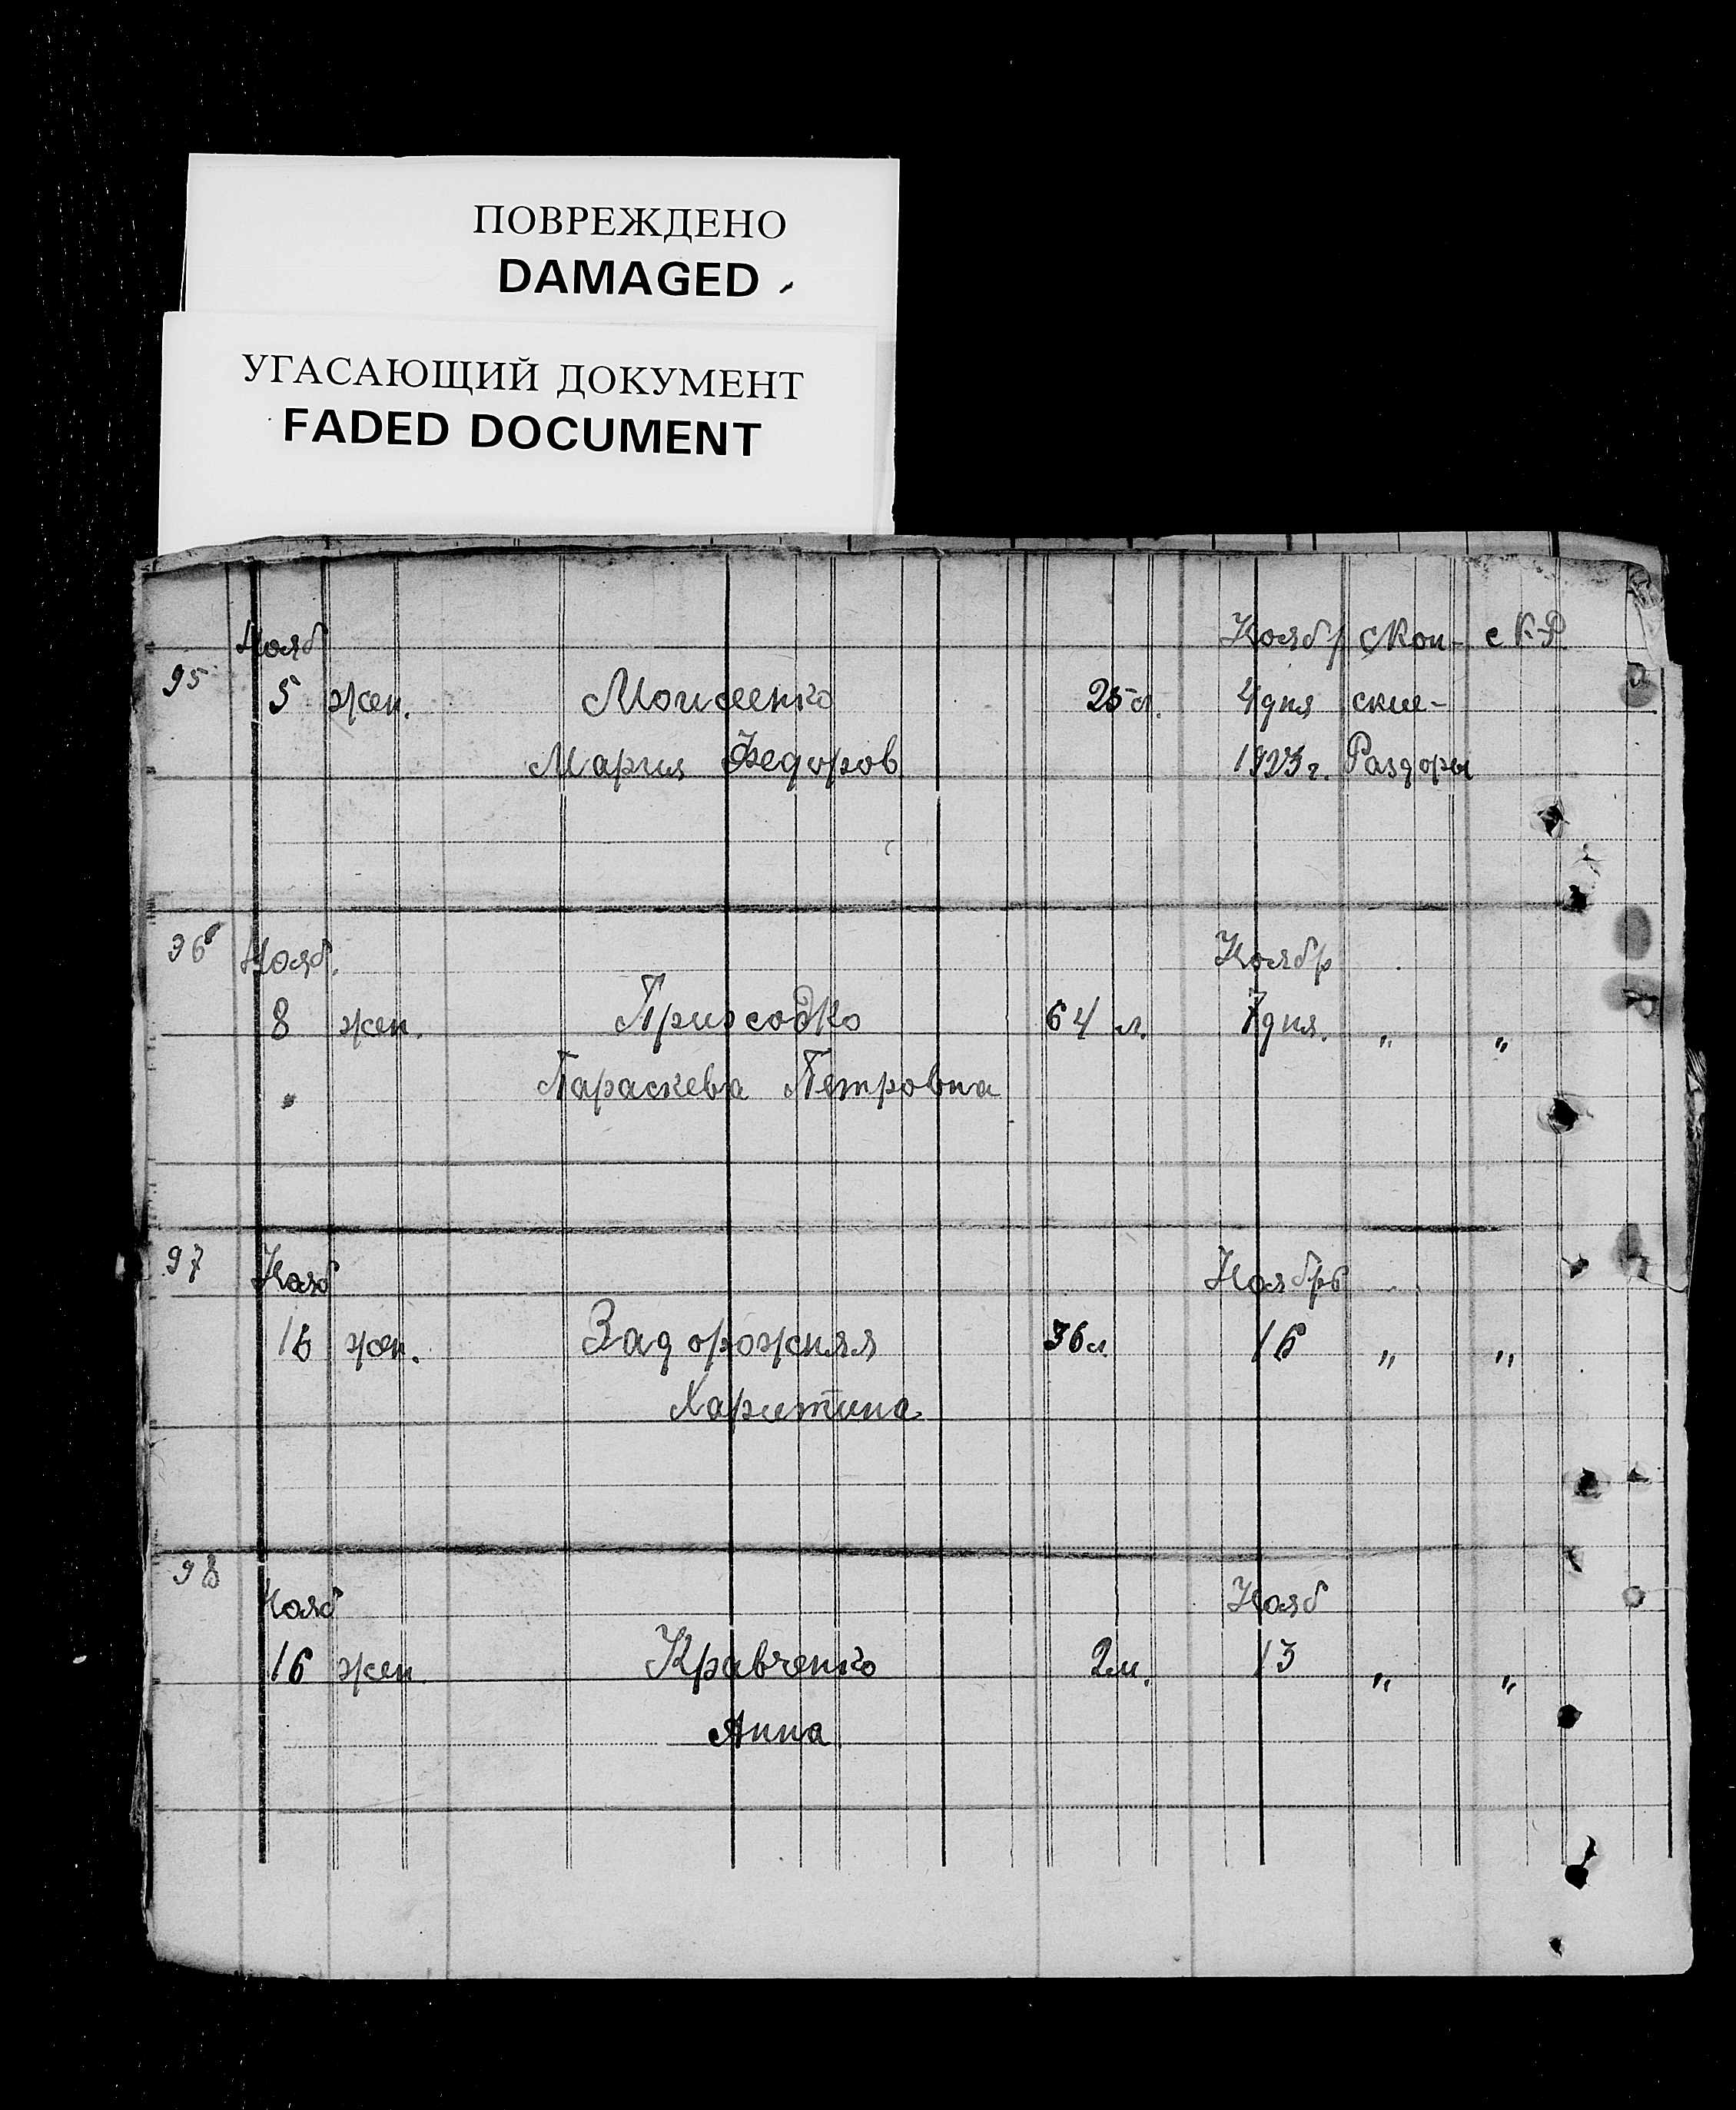 ПОВРЕЖДЕНО
DAMAGED
УГАСАЮЩИЙ ДОКУМЕНТ
FADED DOCUMENT
Нояб Ноябр с Кон- с К-Р
95 5 жен. Моисеенко 25 л. 4 дня ские-
Мария Федоров 1923 г. Раздоры
96 Нояб. Ноябр
8 жен. Приходко 64 л. 7 дня. „ „
„ Параскева Петровна
97 Нояб Ноябрь
16 жен. Задорожняя 36 л. 16 „ „
Харитина
98
Нояб Нояб
16 жен. Кравченко 2 м. 13 „ „
Анна